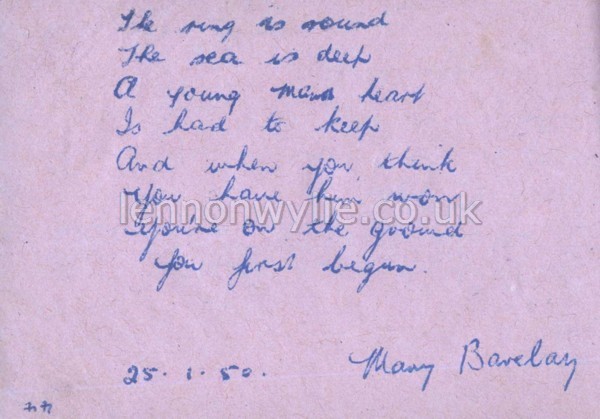 The ring is round
The sea is deep
A young mans heart
Is had to keep
And when you think
You have him won
lennonwylie.co.uk
You're on the ground
You first begun.
25.1.50. Mary Barclay